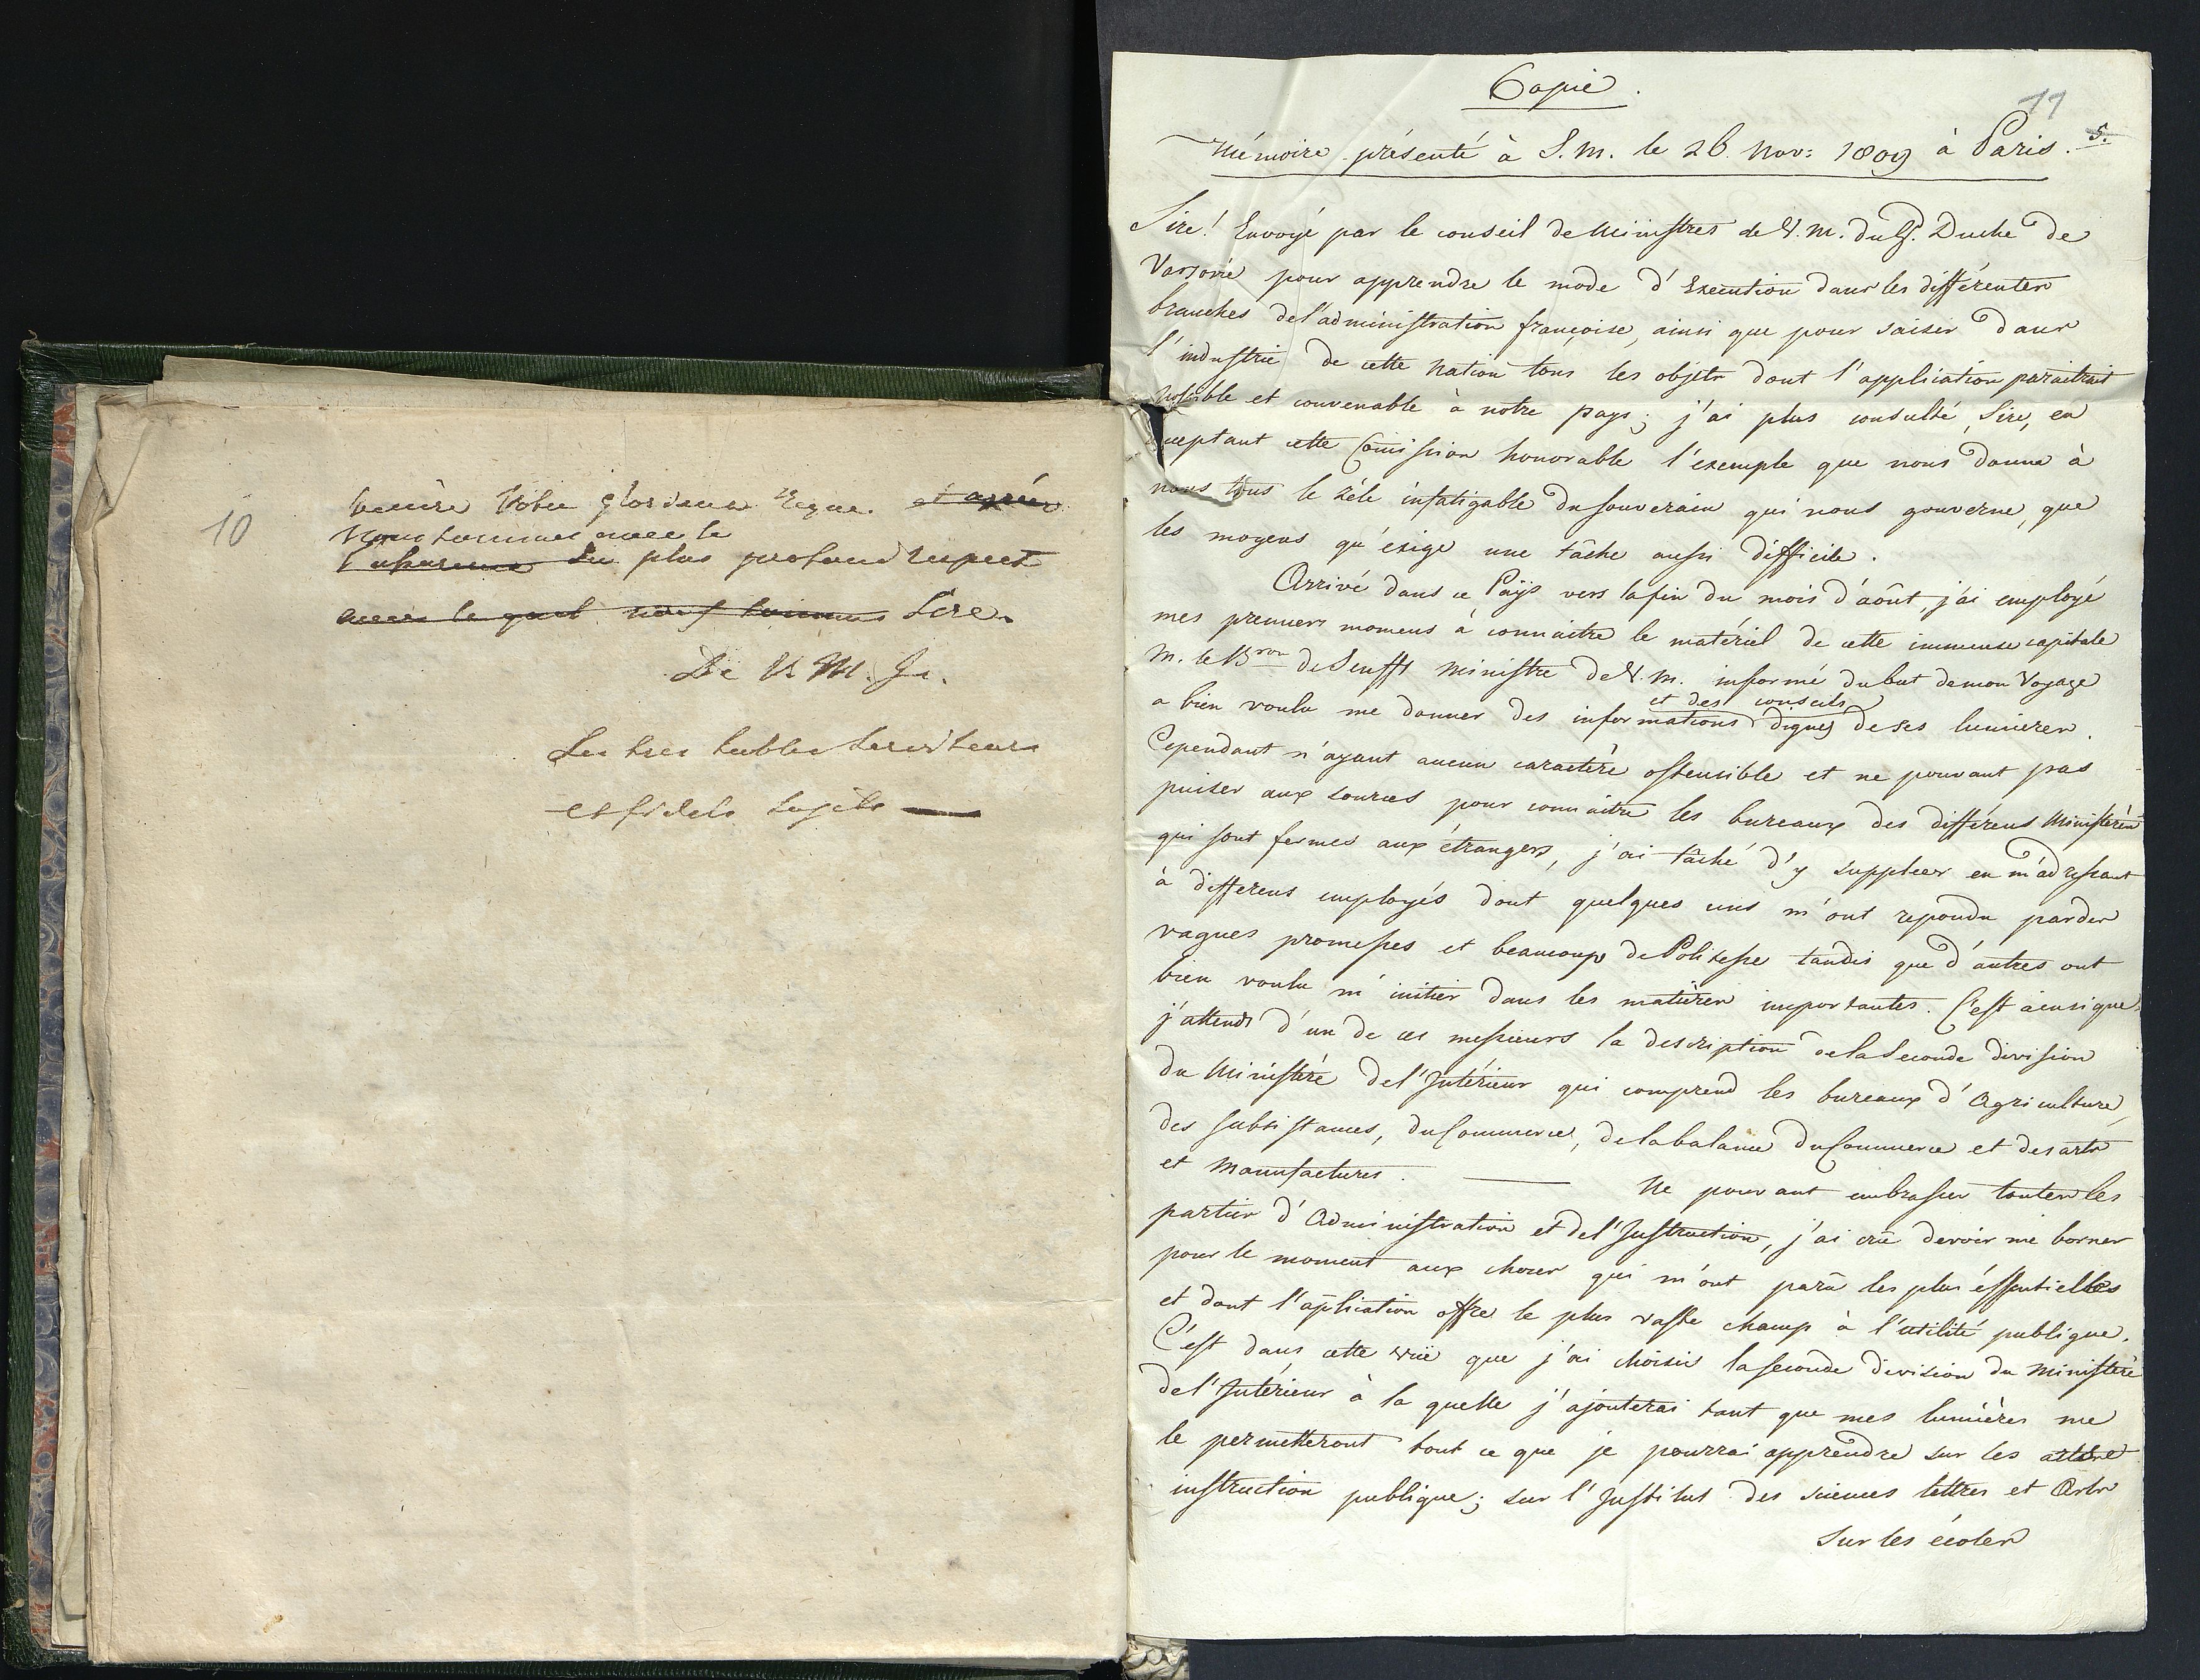 10
Votre glorieux Regne. et agréer
Nous sommes avec le
l'assurance du plus profond respect
avec le quel nous sommes Sire.
De V. M. J.
Les tres humbles serviteurs
et fidels sujets —
Copie.
11
Mémoire présenté à S. M. le 26 Nov: 1809 à Paris. 5.
Sire! Envoyé par le conseil de Ministres de V. M. du G. Duché de
Varsovie pour apprendre le mode d'Execution dans les différentes
branches de l'administration françoise, ainsi que pour saisir dans
l'industrie de cette Nation tous les objets dont l'application paraitrait
possible et convenable à notre pays; j'ai plus consulté, Sire, en
acceptant cette Comission honorable l'exemple que nous donne à
nous tous le zéle infatigable du souverain qui nous gouverne, que
les moyens qu'exige une tâche aussi difficile.
Arrivé dans ce Païs vers la fin du mois d'août, j'ai employé
mes premiers momens à connaitre le matériel de cette immense capitale
M. le Bron de Senfft Ministre de V. M. informé du but de mon Voyage
et des conseils
a bien voulu me donner des informations dignes de ses lumieres.
Cependant n'ayant aucun caractère ostensible et ne pouvant pas
puiser aux sources pour connaitre les bureaux des différens Ministères
qui sont fermés aux étrangers, j'ai tâché d'y suppleer en m'adressant
à differens employés dont quelques uns m'ont repondu par des
vagues promesses et beaucoup de Politesse tandis que d'autres ont
bien voulu m'initier dans les matières importantes. C'est ainsi que
j'attends d'un de ces messieurs la description de la Seconde division
du Ministère de l'Intérieur qui comprend les bureaux d'Agriculture,
des subsistances, du Commerce, de la balance du Commerce et des arts
et Manufactures. — Ne pouvant embrasser toutes les
parties d'Administration et de l'Instruction, j'ai crû devoir me borner
pour le moment aux choses qui m'ont parû les plus éssentielles
et dont l'aplication offre le plus vaste champ à l'utilité publique.
C'est dans cette vuë que j'ai choisie la seconde division du Ministère
de l'Intérieur à la quelle j'ajouterai tant que mes lumières me
le permetteront tout ce que je pourrai apprendre sur les
instruction publique; sur l'Institut des sciences lettres et Arts
sur les écoles